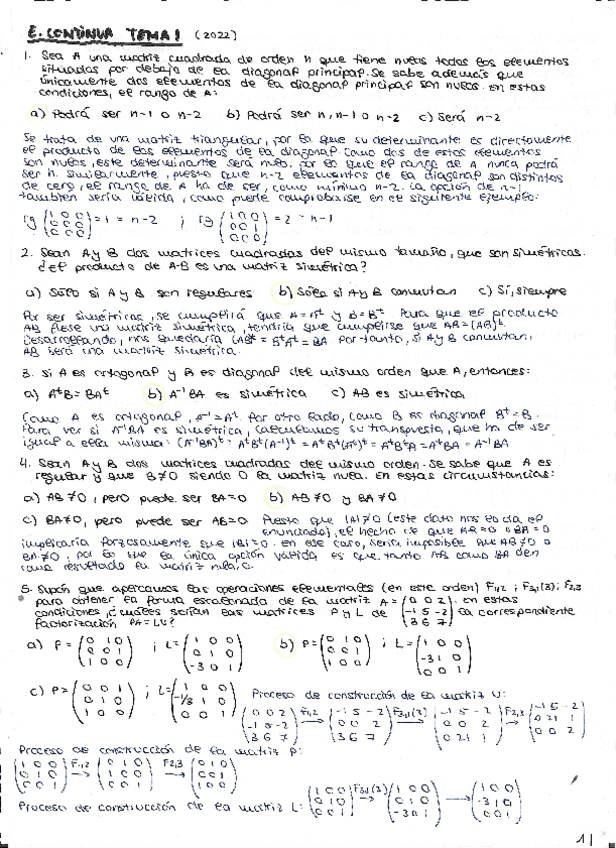 E. CONTINUA TEMA 1 (2022)
1. Sea A una matriz cuadrada de orden n que tiene nulos todos los elementos
situados por debajo de la diagonal principal. Se sabe además que
únicamente dos elementos de la diagonal principal son nulos. En estas
condiciones, el rango de A:
a) Podrá ser n-1 o n-2 b) Podrá ser n, n-1 o n-2 c) Será n-2
Se trata de una matriz triangular, por lo que su determinante es directamente
el producto de los elementos de la diagonal. Como dos de estos elementos
son nulos, este determinante será nulo, por lo que el rango de A nunca podrá
ser n. Similarmente, puesto que n-2 elementos de la diagonal son distintos
de cero, el rango de A ha de ser, como mínimo n-2. La opción de n-1
también sería válida, como puede comprobarse en el siguiente ejemplo:
rg (1 0 0 = 1 = n-2 ; rg (1 0 0 = 2 = n-1
0 0 0 0 0 1
0 0 0) 0 0 0)
2. Sean A y B dos matrices cuadradas del mismo tamaño, que son simétricas.
¿El producto de A·B es una matriz simétrica?
a) Sólo si A y B son regulares b) Sólo si A y B conmutan c) Sí, siempre
Por ser simétricas, se cumplirá que A = Aᵗ y B = Bᵗ. Para que el producto
AB fuese una matriz simétrica, tendría que cumplirse que AB = (AB)ᵗ.
Desarrollando, nos quedaría (AB)ᵗ = BᵗAᵗ = BA Por tanto, si A y B conmutan,
AB será una matriz simétrica.
3. Si A es ortogonal y B es diagonal del mismo orden que A, entonces:
a) AᵗB = BAᵗ b) A⁻¹BA es simétrica c) AB es simétrica
Como A es ortogonal, A⁻¹ = Aᵗ. Por otro lado, como B es diagonal Bᵗ = B.
Para ver si A⁻¹BA es simétrica, calculamos su transpuesta, que ha de ser
igual a ella misma: (A⁻¹BA)ᵗ = AᵗBᵗ(A⁻¹)ᵗ = AᵗBᵗ(Aᵗ)ᵗ = AᵗBᵗA = AᵗBA = A⁻¹BA
4. Sean A y B dos matrices cuadradas del mismo orden. Se sabe que A es
regular y que B≠0 siendo 0 la matriz nula. En estas circunstancias:
a) AB≠0, pero puede ser BA=0 b) AB≠0 y BA≠0
c) BA≠0, pero puede ser AB=0 Puesto que |A|≠0 (este dato nos lo da el
enunciado), el hecho de que AB=0 o BA=0
implicaría forzosamente que |B|=0. En ese caso, sería imposible que AB≠0 o
BA≠0, por lo que la única opción válida es que tanto AB como BA den
como resultado la matriz nula, 0.
5. Supón que aplicamos las operaciones elementales (en este orden) F₁,₂ ; F₃,₁(3); F₂,₃
para obtener la forma escalonada de la matriz A = (0 0 2 . En estas
condiciones, ¿cuáles serían las matrices P y L de -1 5 -2 la correspondiente
factorización PA = LU? 3 6 7)
a) P = (0 1 0 ; L = (1 0 0 b) P = (0 1 0 ; L = (1 0 0
0 0 1 0 1 0 0 0 1 -3 1 0
1 0 0) -3 0 1) 1 0 0) 0 0 1)
c) P = (0 0 1 ; L = (1 0 0 Proceso de construcción de la matriz U:
0 1 0 -1/3 1 0
1 0 0) 0 0 1)
(0 0 2 F₁,₂ (-1 5 -2 F₃,₁(3) (-1 5 -2 F₂,₃ (-1 5 -2
-1 5 -2 → 0 0 2 → 0 0 2 → 0 21 1
3 6 7) 3 6 7) 0 21 1) 0 0 2)
Proceso de construcción de la matriz P:
(1 0 0 F₁,₂ (0 1 0 F₂,₃ (0 1 0
0 1 0 → 1 0 0 → 0 0 1
0 0 1) 0 0 1) 1 0 0)
Proceso de construcción de la matriz L: (1 0 0 F₃,₁(3) (1 0 0 → (1 0 0
0 1 0 → 0 1 0 -3 1 0
0 0 1) -3 0 1) 0 0 1)
1|